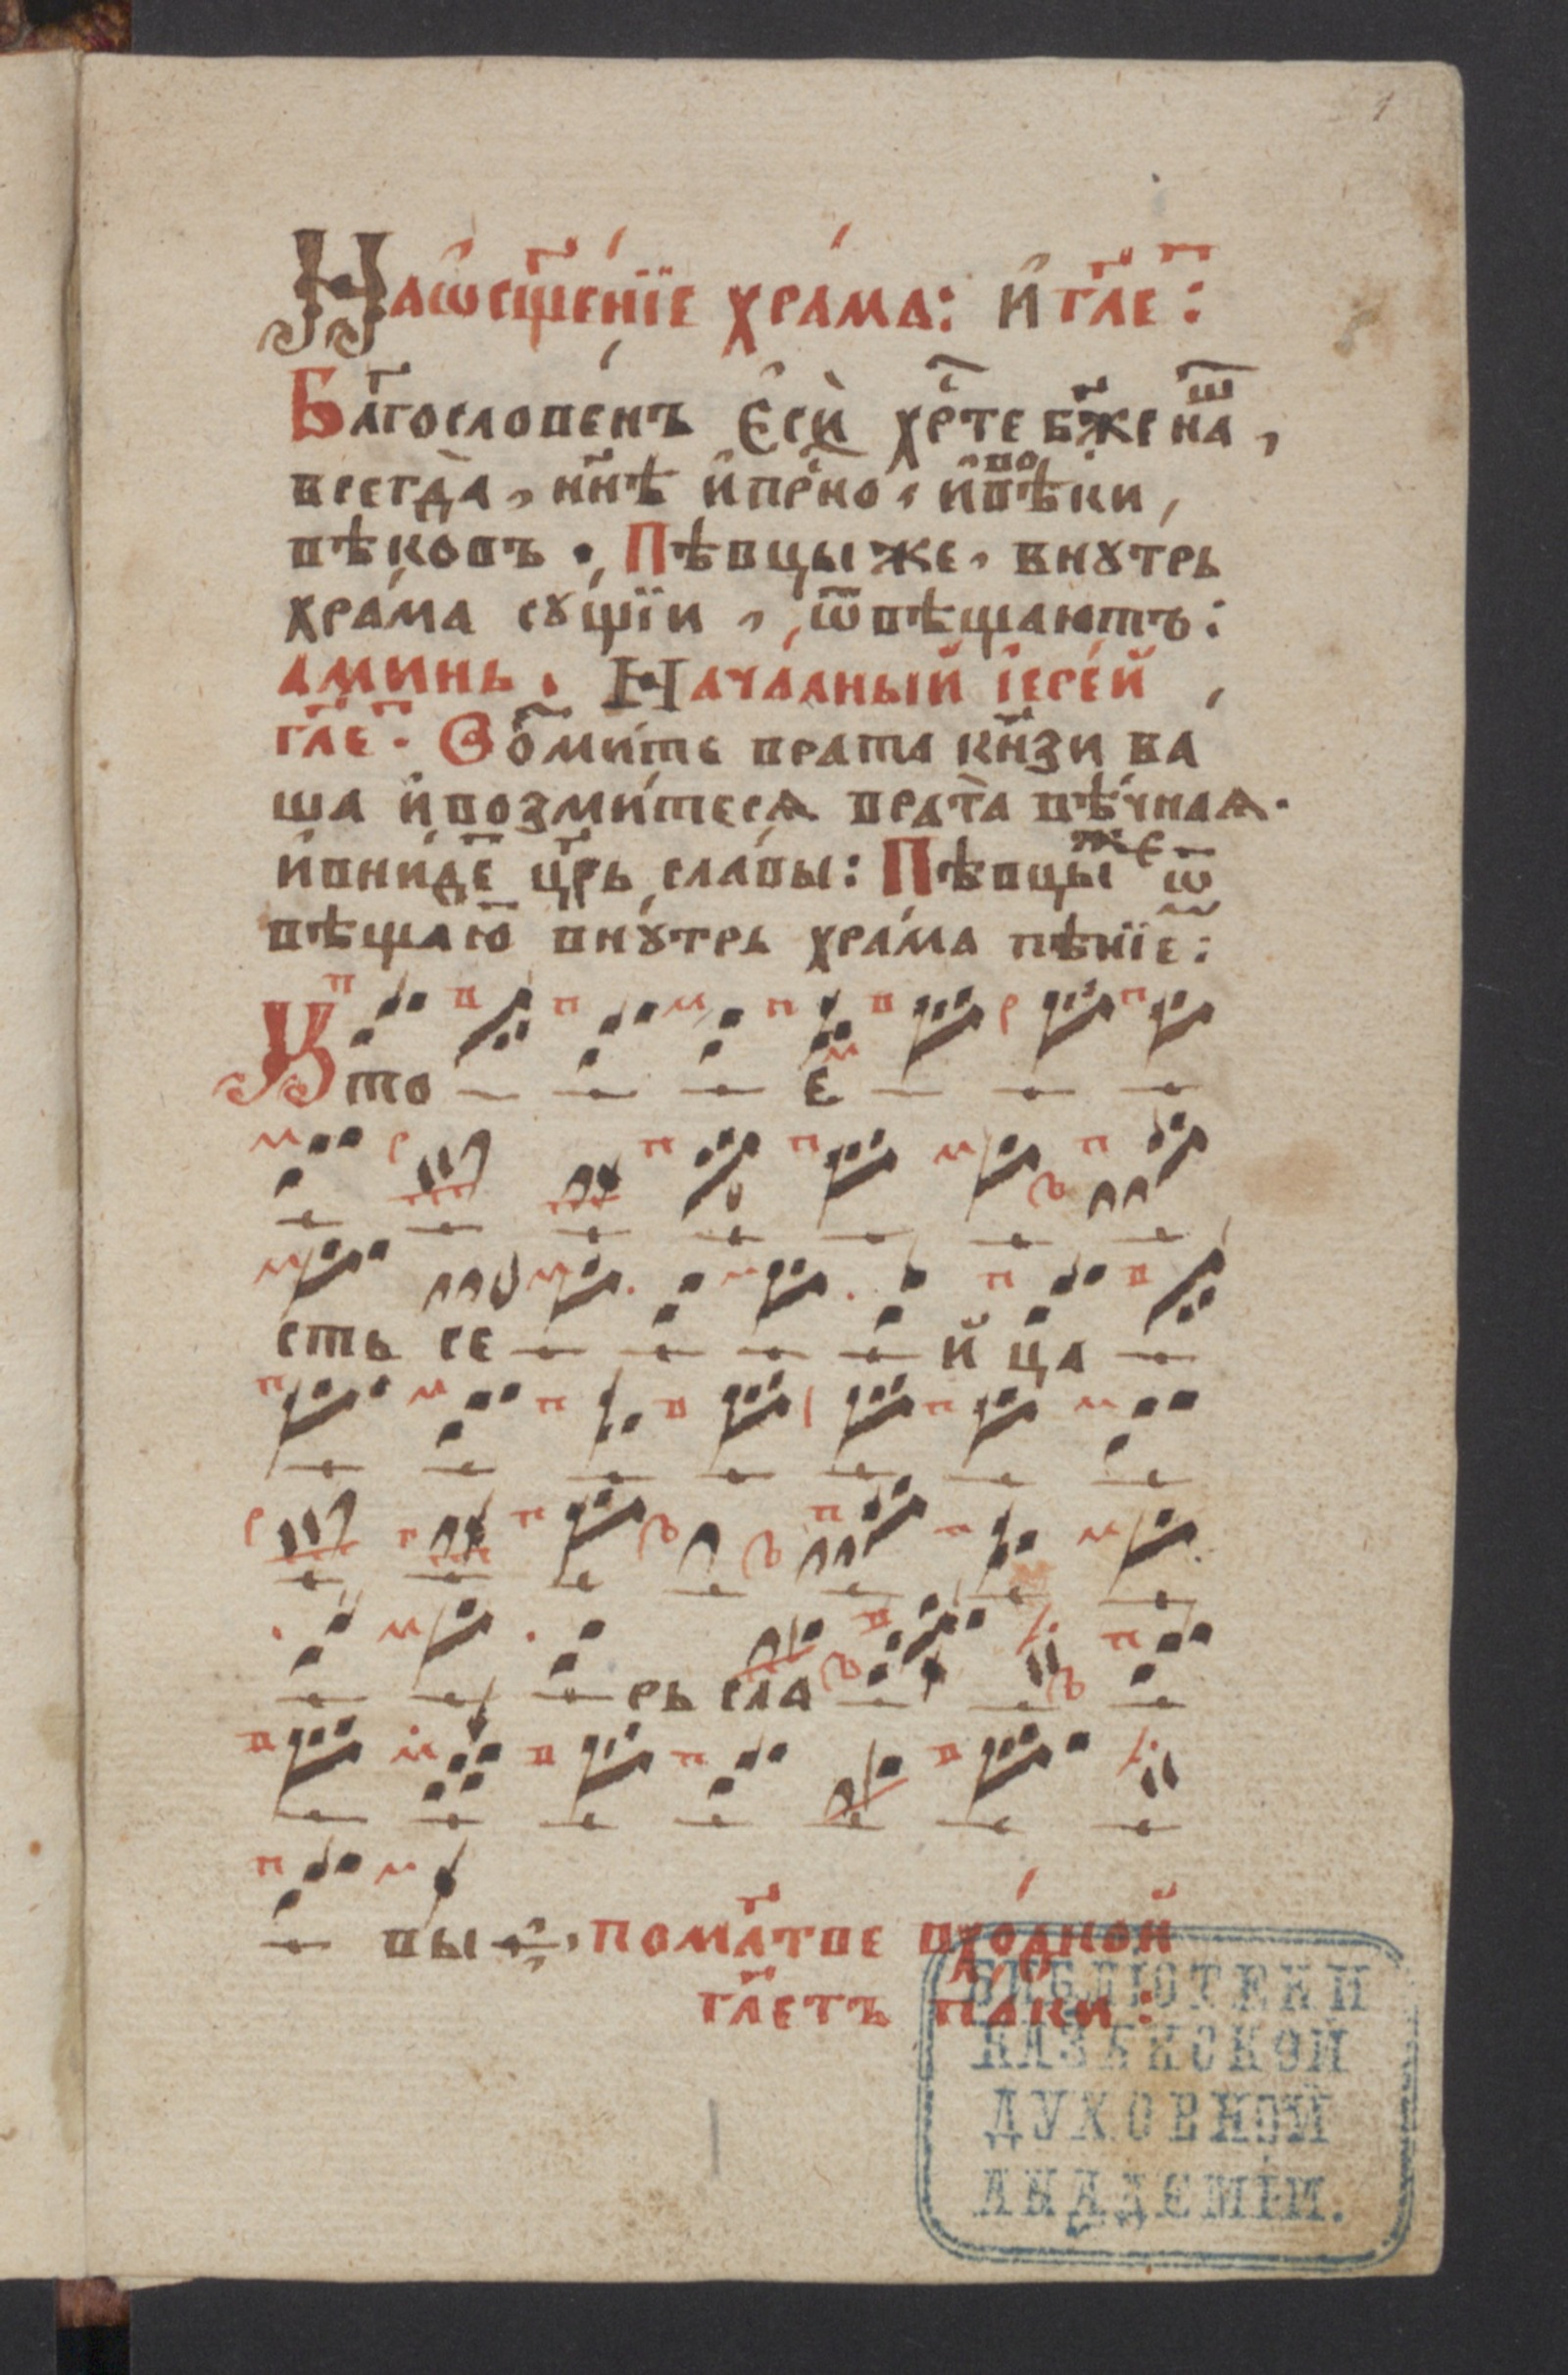 1
На ѡсщ҃енїе хра́ма: и҆ гл҃е:
Бл҃гослове́нъ є҆сѝ хрⷭ҇те бж҃е на́ш,
всегда̀, нн҃ѣ и҆ прⷭ҇но, и҆ во вѣ́ки,
вѣкѡвъ. Пѣвцы же, внꙋтрь
хра́ма сꙋ́щїи, ѿвѣща́ютъ:
аминь. Нача́лный і҆ере́й
гл҃е. Во́змите врата кн҃зи ва
ша и҆ возми́теся врата̀ вѣ́чная.
и҆ вни́де цр҃ь сла́вы: Пѣвцы́ же ѿ
вѣща́ю внꙋ́трь хра́ма пѣ́нїе:
Кто є
сть се й ца
рь сла
вы. по мл҃тве вхо́дной
гл҃етъ па́ки:
БИБЛІОТЕКИ
КАЗАНСКОЙ
ДУХОВНОЙ
АКАДЕМІИ.